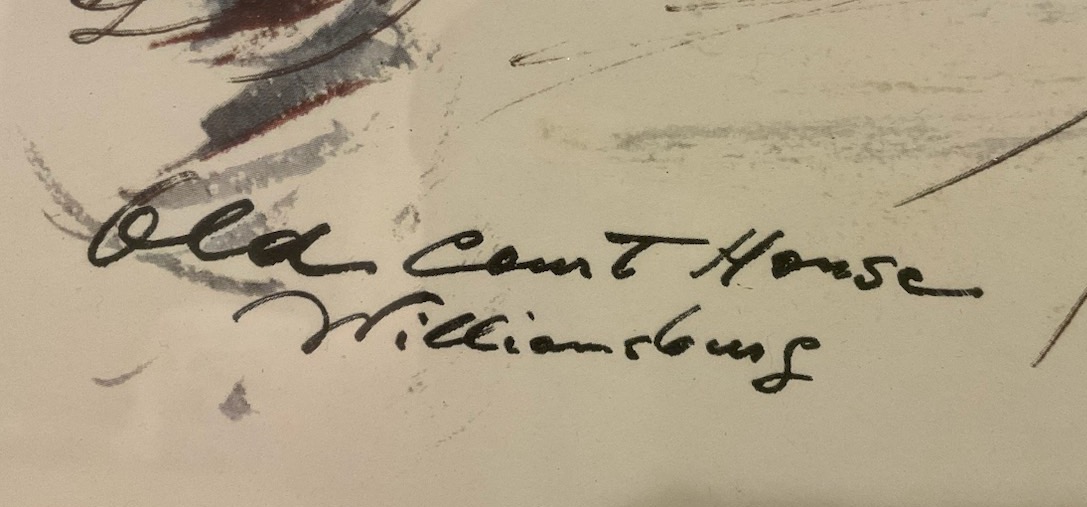 Old Court House
Williamsburg